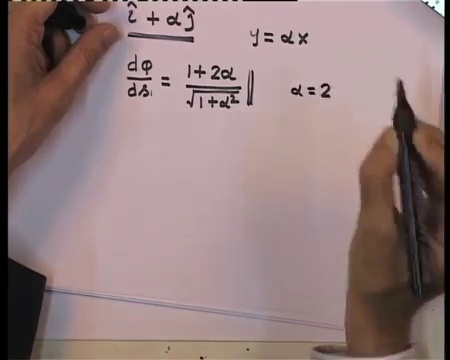 î + αĵ
y = αx
dφ/ds = (1+2α)/√(1+α²)
α = 2